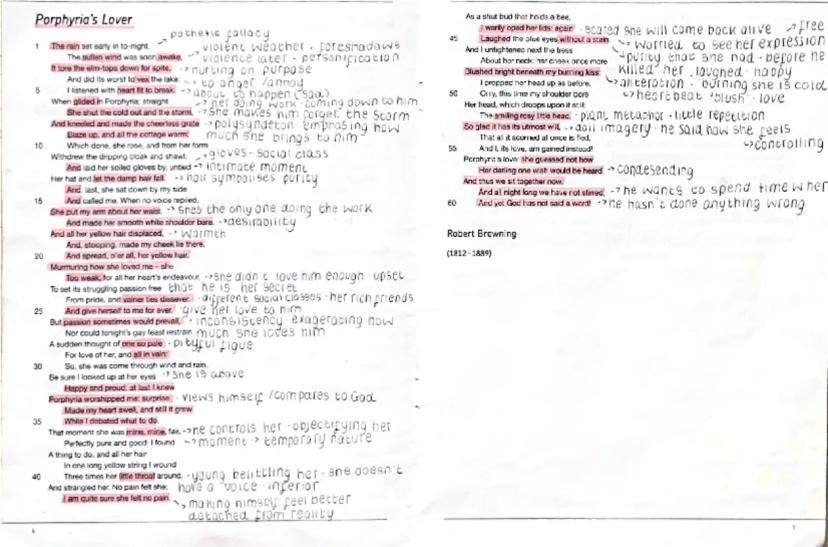 Porphyria's Lover
pathetic fallacy
1 The rain set early in to-night, → violent weather · foreshadows
The sullen wind was soon awake, violence later · personification
It tore the elm-tops down for spite, → hurting on purpose
And did its worst to vex the lake: → to anger/annoy
5 I listened with heart fit to break. → about to happen (sad)
When glided in Porphyria; straight → her doing work · coming down to him
She shut the cold out and the storm, → she makes him forget the storm
And kneeled and made the cheerless grate → polysyndeton emphasing how
Blaze up, and all the cottage warm; much she brings to him
10 Which done, she rose, and from her form
Withdrew the dripping cloak and shawl, → gloves - social class
And laid her soiled gloves by, untied → intimate moment
Her hat and let the damp hair fall, → hair symbolises purity
And, last, she sat down by my side
15 And called me. When no voice replied,
She put my arm about her waist, → shes the only one doing the work
And made her smooth white shoulder bare, → desirability
And all her yellow hair displaced, → warmth
And, stooping, made my cheek lie there,
20 And spread, o'er all, her yellow hair,
Murmuring how she loved me – she
Too weak, for all her heart's endeavour, → she didn't love him enough · upset
To set its struggling passion free that he is her secret
From pride, and vainer ties dissever, · different social classes · her rich friends
25 And give herself to me for ever. 'give her love to him
But passion sometimes would prevail, · inconsistency exagerating how
Nor could tonight's gay feast restrain much she loves him
A sudden thought of one so pale · pityful figue
For love of her, and all in vain:
30 So, she was come through wind and rain.
Be sure I looked up at her eyes → she is above
Happy and proud; at last I knew
Porphyria worshipped me: surprise · views himself /compares to God
Made my heart swell, and still it grew
35 While I debated what to do.
That moment she was mine, mine, fair, → he controls her · objectifying her
Perfectly pure and good: I found → moment → temporary nature
A thing to do, and all her hair
In one long yellow string I wound
40 Three times her little throat around, · young belittling her · she doesn't
And strangled her. No pain felt she; have a voice · inferior
I am quite sure she felt no pain. → making himself feel better
detached from reality
6
As a shut bud that holds a bee,
I warily oped her lids: again → scared she will come back alive → free
45 Laughed the blue eyes without a stain. → worried to see her expression
And I untightened next the tress · purity that she had · before he
About her neck; her cheek once more killed her · laughed · happy
Blushed bright beneath my burning kiss: → aliteration · burning she is cold
I propped her head up as before, → heartbeat 'blush' · love
50 Only, this time my shoulder bore
Her head, which droops upon it still:
The smiling rosy little head, · plant metaphor · little repetition
So glad it has its utmost will, → doll imagery · he said how she feels
That all it scorned at once is fled, → controlling
55 And I, its love, am gained instead!
Porphyria's love: she guessed not how
Her darling one wish would be heard. → condesending
And thus we sit together now,
And all night long we have not stirred, → he wants to spend time w her
60 And yet God has not said a word! → he hasn't done anything wrong
Robert Browning
(1812 - 1889)
7